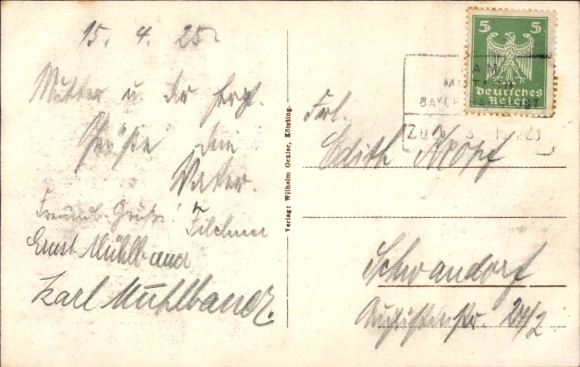 15. 4. 25.
Mutter u. Dir herzl.
Grüße dein
Vater.
Freundl. Grüße! Filchner
Ernst Mühlbauer
Karl Mühlbauer.
Verlag: Wilhelm Gexler, Kötzting.
5 5
Deutsches
Reich
Frl.
Edith Knopf
Schwandorf
Augustinstr. 24/2